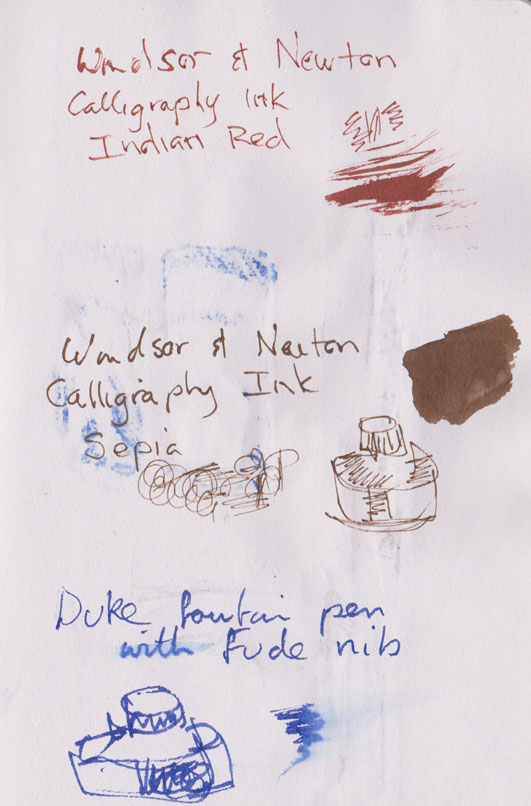 Windsor & Newton
Calligraphy Ink
Indian Red
Windsor & Newton
Calligraphy Ink
Sepia
Duke fountain pen
with Fude nib